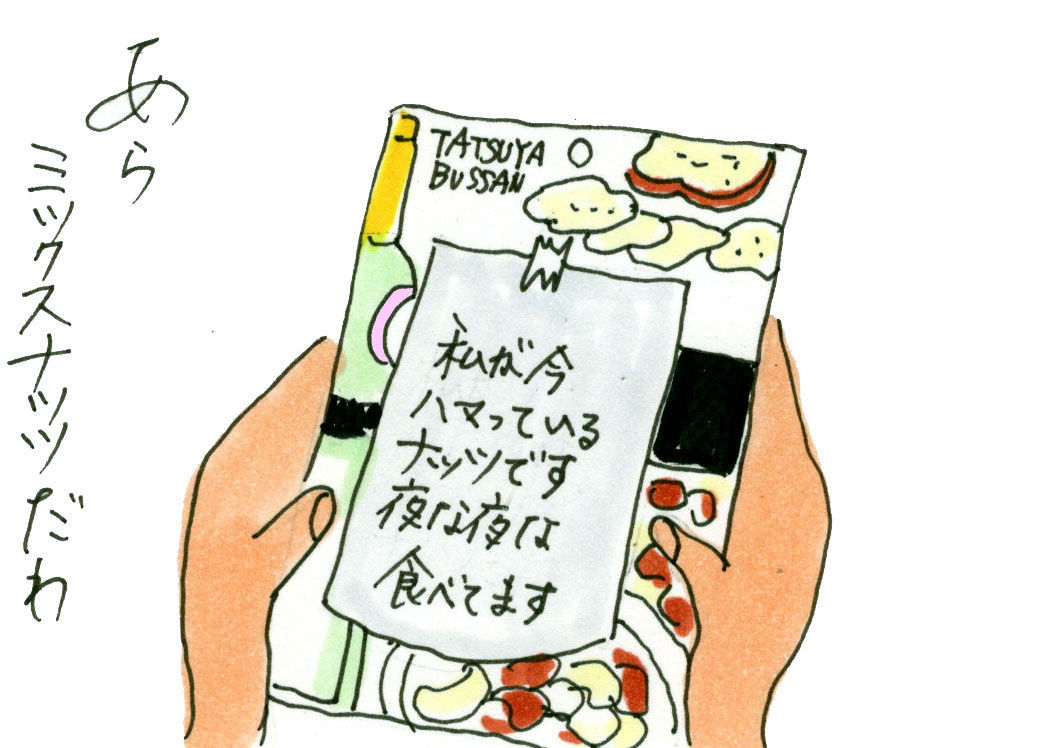 あら
ミックスナッツだわ
TATSUYA
BUSSAN
私が今
ハマっている
ナッツです
夜な夜な
食べてます